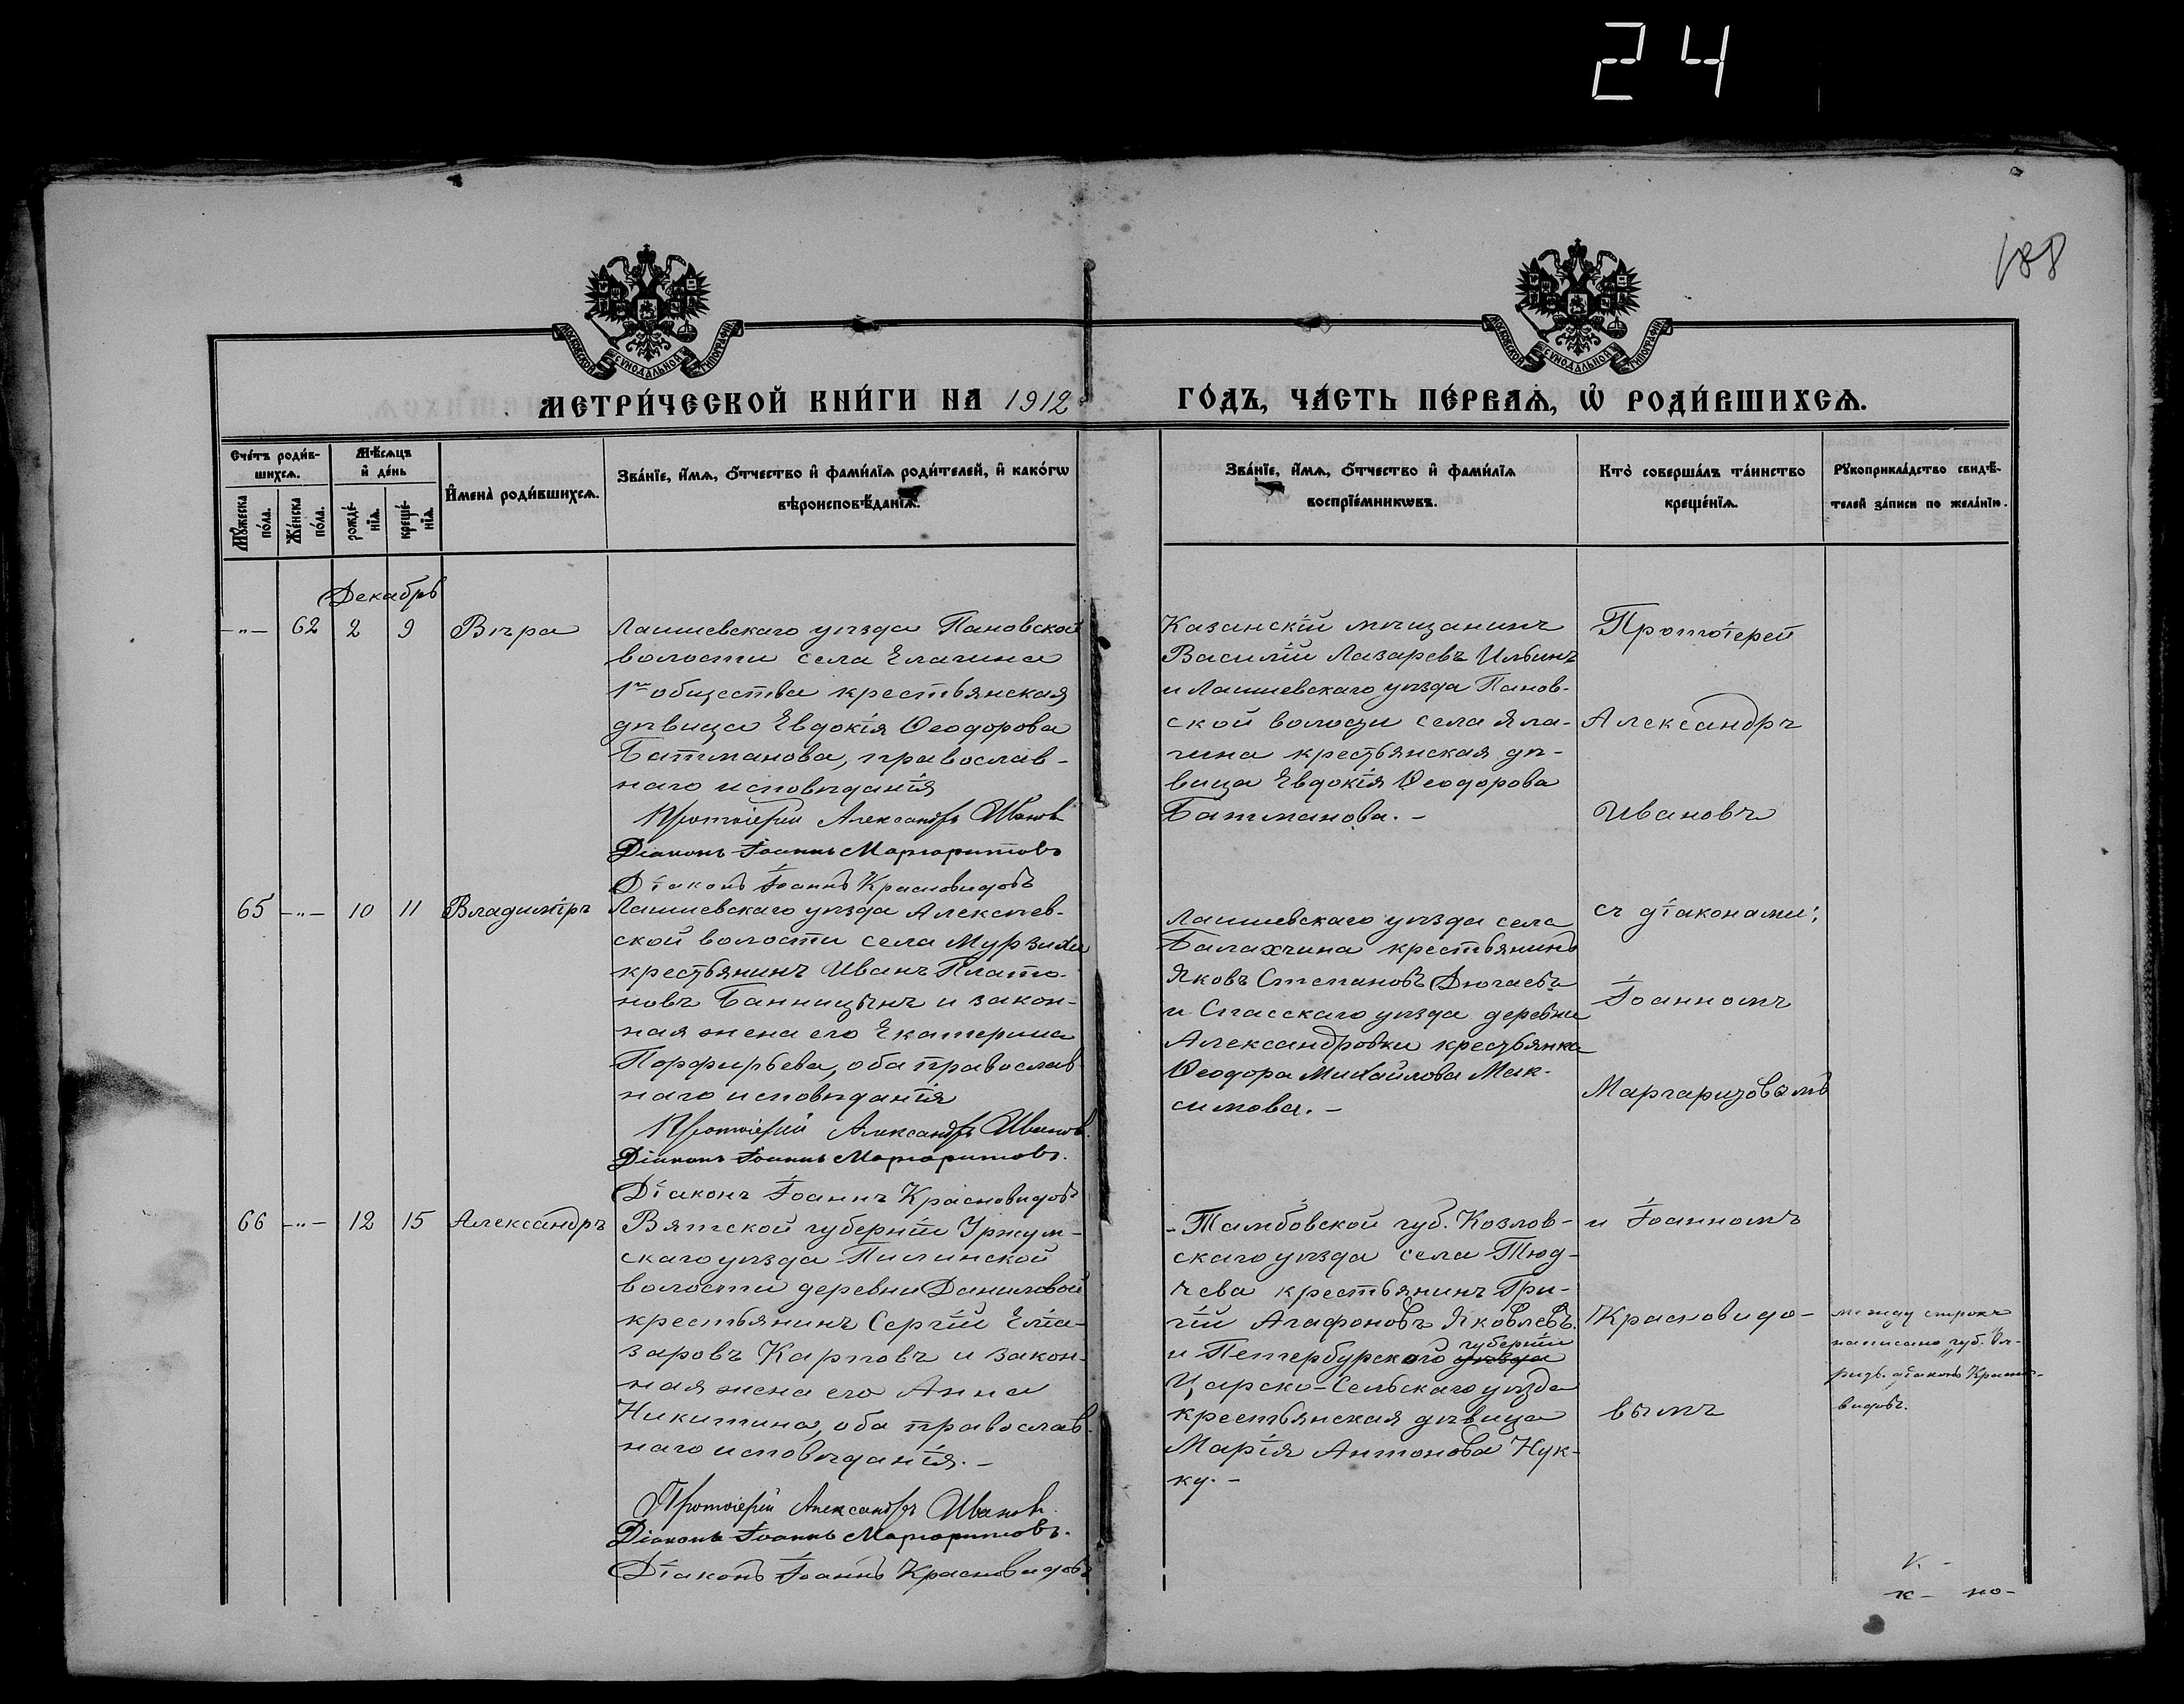 24
188
МОСКОВСКОЙ СѴНОДАЛЬНОЙ ТИПОГРАФІИ
МОСКОВСКОЙ СѴНОДАЛЬНОЙ ТИПОГРАФІИ
МЕТРИ́ЧЕСКОЙ КНИ́ГИ НА 1912 ГО́ДЪ, ЧА́СТЬ ПЕ́РВАѦ, Ѡ РОДИ́ВШИХСѦ.
Сче́тъ роди́в-
шихсѧ.
Мꙋжеска по́ла.
Же́нска по́ла.
Мѣ́сѧцъ
и҆ де́нь
рожде́-
нїѧ.
креще́-
нїѧ.
И҆мена̀ роди́вшихсѧ.
Зва́нїе, и҆́мѧ, ѻ҆́тчество и҆ фами́лїѧ роди́телей, и҆ како́гѡ
вѣроисповѣ́данїѧ.
Зва́нїе, и҆́мѧ, ѻ҆́тчество и҆ фами́лїѧ
воспрїе́мникѡвъ.
Кто̀ соверша́лъ та́инство
креще́нїѧ.
Рꙋкоприкла́дство свидѣ́-
телей за́писи по жела́нїю.
Декабрь
-"- 62 2 9 Вѣра
Лаишевскаго уѣзда Пановской
волости села Елагина
1го общества крестьянская
дѣвица Евдокія Ѳеодорова
Батманова, православ-
наго исповѣданія
Протоіерей Александръ Ивановъ
Діаконъ Іоаннъ Маргаритовъ
Діаконъ Іоаннъ Красновидовъ
Казанскій мѣщанинъ
Василій Лазаревъ Ильинъ
и Лаишевскаго уѣзда Панов-
ской волости села Яла-
гина крестьянская дѣ-
вица Евдокія Ѳеодорова
Батманова. -
Протоіерей
Александръ
Ивановъ
65 -"- 10 11 Владиміръ
Лаишевскаго уѣзда Алексѣев-
ской волости села Мурзихи
крестьянинъ Иванъ Плато-
новъ Банницынъ и закон-
ная жена его Екатерина
Порфирьева, оба православ-
наго исповѣданія
Протоіерей Александръ Ивановъ.
Діаконъ Іоаннъ Маргаритовъ.
Діаконъ Іоаннъ Красновидовъ
Лаишевскаго уѣзда села
Балахчина крестьянинъ
Яковъ Степановъ Дюгаевъ
и Спасскаго уѣзда деревни
Александровки крестьянка
Ѳеодора Михайлова Мак-
симова. -
съ діаконами:
Іоанномъ
Маргаритовымъ
66 -"- 12 15 Александръ
Вятской губерніи Уржум-
скаго уѣзда Пилинской
волости деревни Даниловой
крестьянинъ Сергій Еліа-
заровъ Карповъ и закон-
ная жена его Анна
Никитина, оба православ-
наго исповѣданія. -
Протоіерей Александръ Ивановъ.
Діаконъ Іоаннъ Маргаритовъ.
Діаконъ Іоаннъ Красновидовъ
Тамбовской губ. Козлов-
скаго уѣзда села Тюд-
чева крестьянинъ Гри-
гій Агафоновъ Яковлевъ.
губерніи
и Петербурскаго уѣзда
Царско-Сельскаго уѣзда
крестьянская дѣвица
Марія Антонова Нук-
ку. -
и Іоанномъ
Красновидо-
вымъ
между строкъ
написано „губ.
діаконъ Красно-
видовъ.